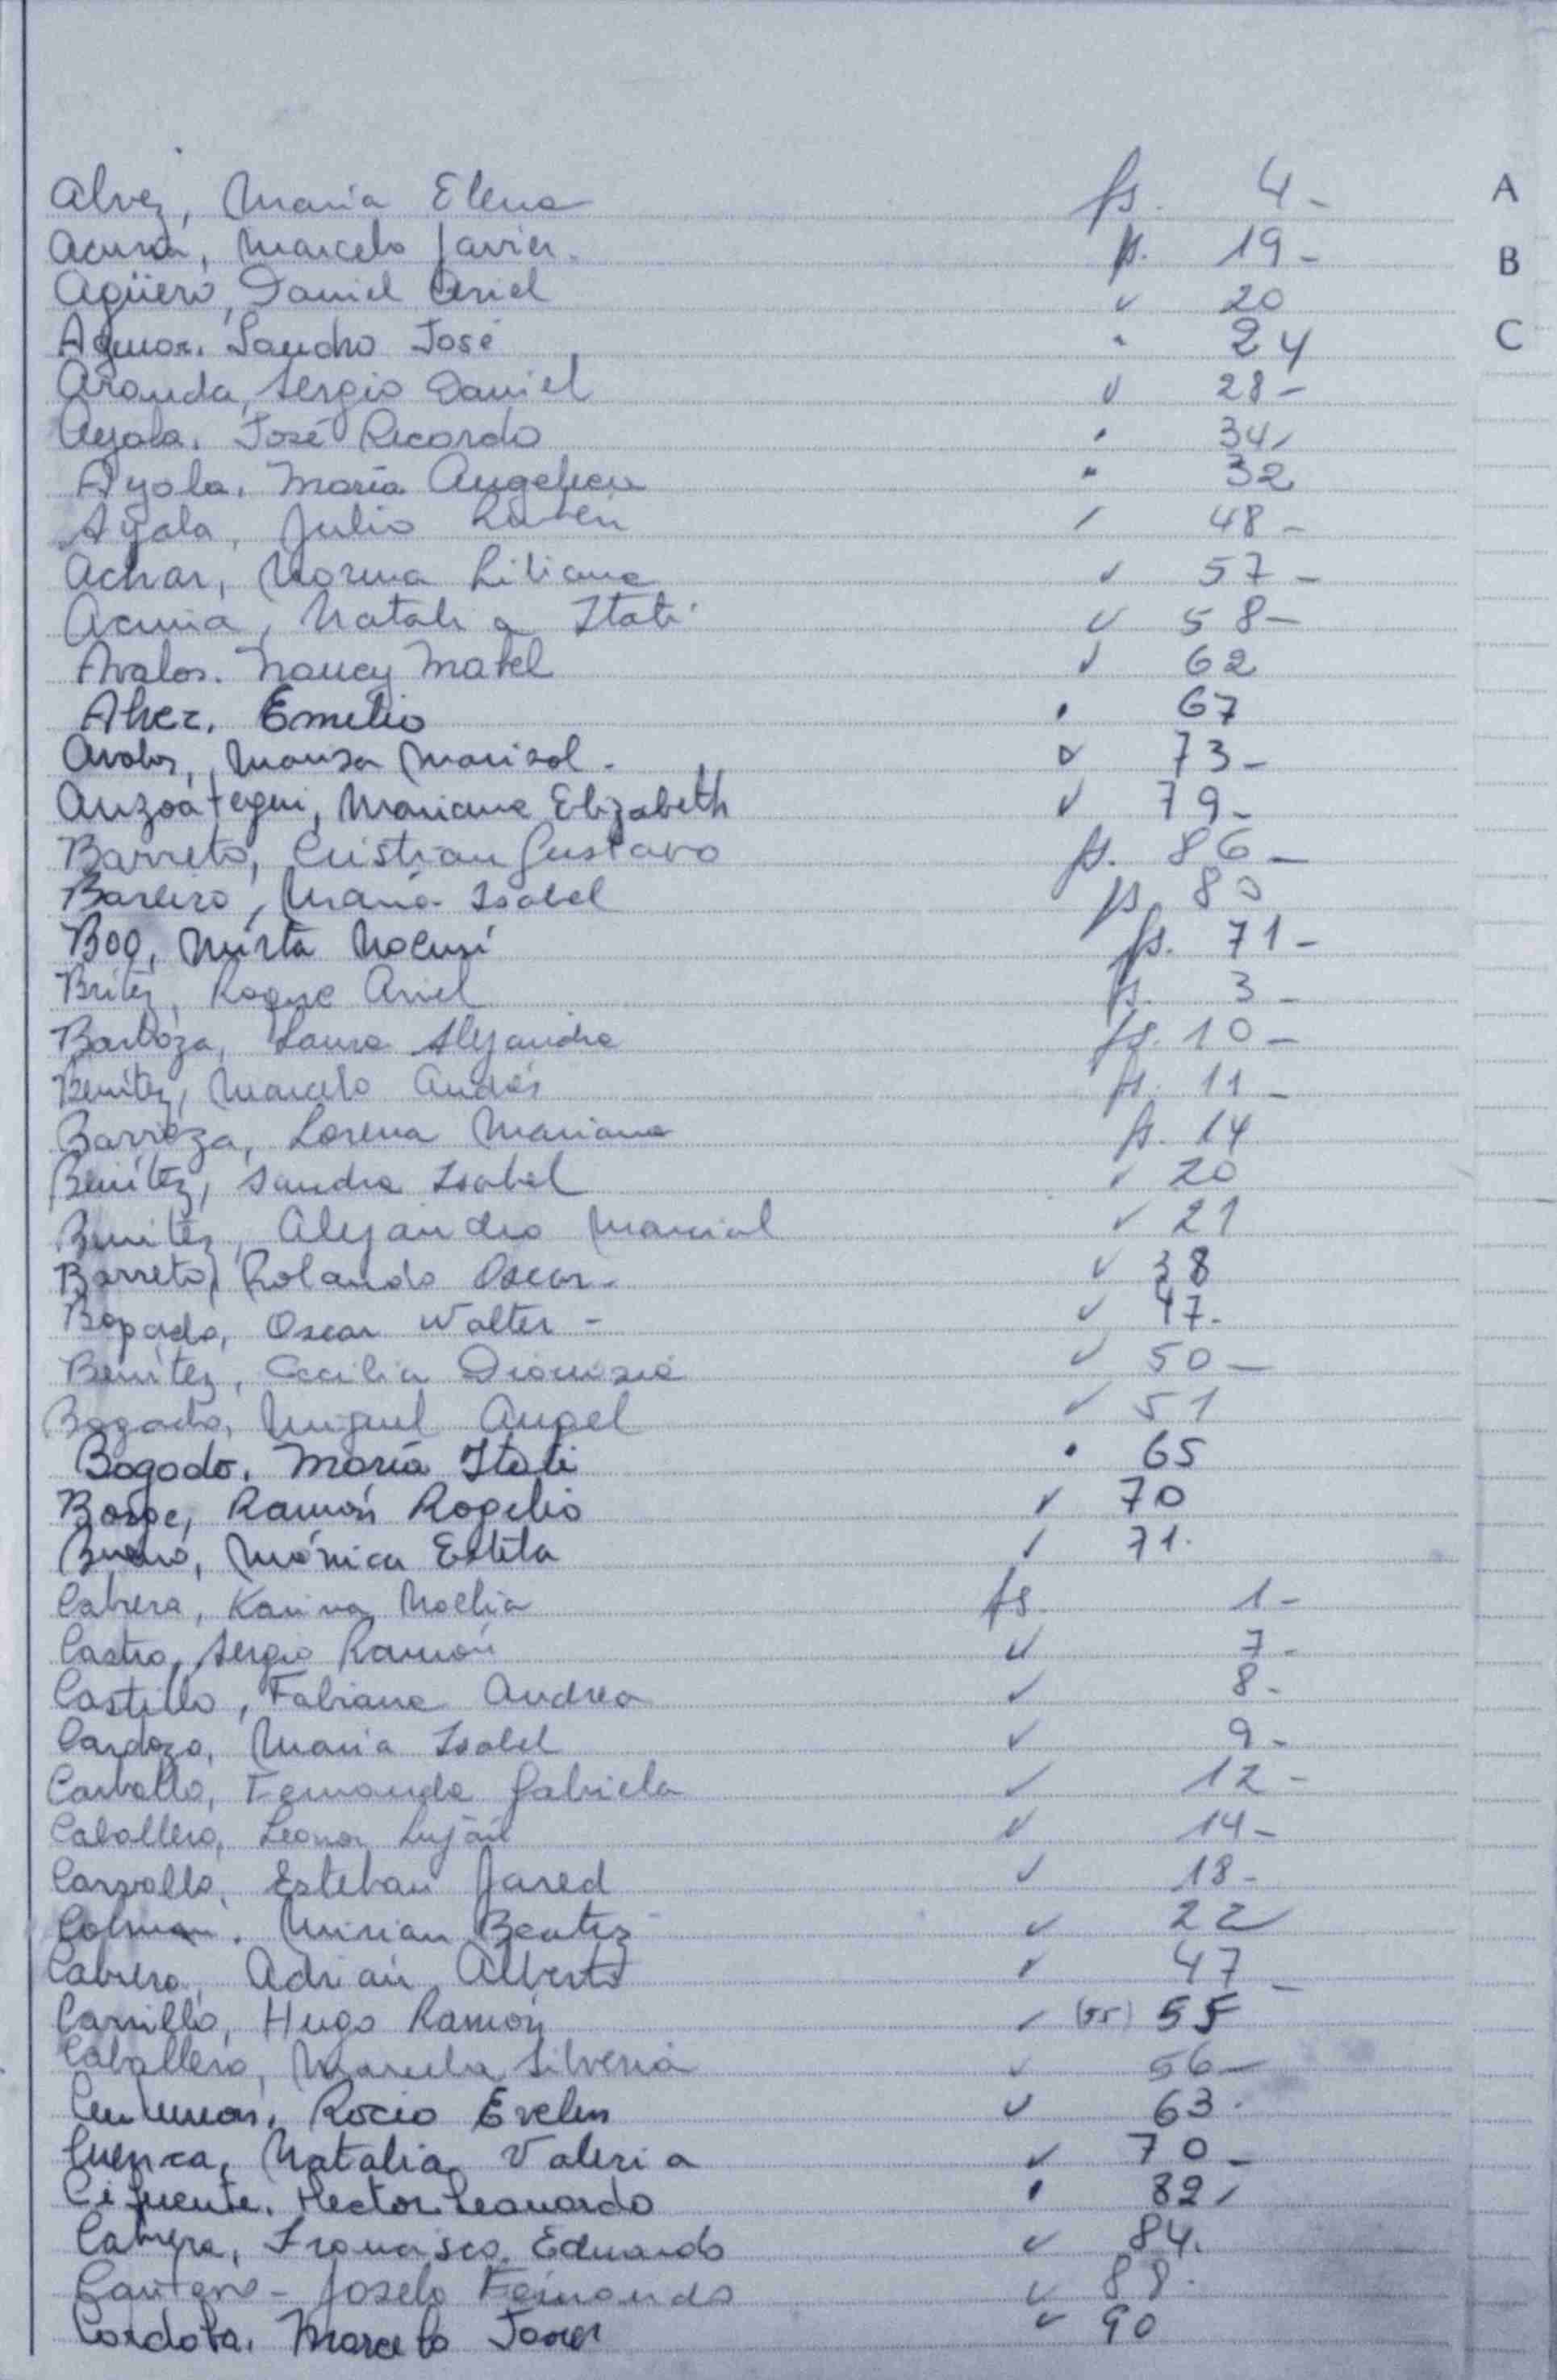 Alvez, Maria Elena fs. 4 - A
Acuña, Marcelo Javier. fs. 19 -
Agüero, Daniel Ariel ✓ 20 B
Sandro José " 24 C
Aranda, Sergio Daniel ✓ 28 -
Ayala. José Ricardo " 34
Ayala. María Angelica " 32
Ayala, Julio Rubén ✓ 48 -
Achar, Norma Liliana ✓ 57 -
Acuña, Natalia Itatí ✓ 58 -
Avalos. Nancy Mabel ✓ 62
Alvez. Emilio " 67
Avalos, Marisa Marisol - ✓ 73 -
Anzoátegui, Mariana Elizabeth ✓ 79 -
Barreto, Cristian Gustavo fs. 86 -
Bareiro, María Isabel fs. 80
Boo, Mirta Noemí fs. 71 -
Britez, Roque Ariel fs. 3 -
Barboza, Laura Alejandra fs. 10 -
Benítez, Marcelo Andrés fs. 11 -
Barrioza, Lorena Mariana fs. 14
Benítez, Sandra Isabel ✓ 20
Benitez, Alejandro Marcial ✓ 21
Barreto, Rolando Oscar - ✓ 38
Bogado, Oscar Walter - ✓ 47 -
Benítez, Cecilia Dionisia ✓ 50 -
Bogado, Miguel Angel ✓ 51
Bogado. María Itatí " 65
Borge, Ramón Rogelio ✓ 70
Bueno, Mónica Estela ✓ 71.
Cabrera, Karina Noelia fs 1 -
Castro, Sergio Ramón ✓ 7 -
Castillo, Fabiana Andrea ✓ 8 -
Cardozo, Maria Isabel ✓ 9 -
Carballo, Fernanda Gabriela ✓ 12 -
Caballero, Leonor Luján ✓ 14 -
Carvallo, Esteban Jared ✓ 18 -
Colman. Mirian Beatriz ✓ 22
Cabrera, Adrián Alberto ✓ 47 -
Carrillo, Hugo Ramón ✓ (55) 55
Caballero, Marcela Silveria ✓ 56 -
Rocío Evelin ✓ 63.
Cuenca, Natalia Valeria ✓ 70 -
Cifuente. Hector Leonardo " 82
Cabrera, Francisco Eduardo ✓ 84.
Cantero - Joselo Fernando ✓ 88.
Cordoba. Marcelo Javier ✓ 90